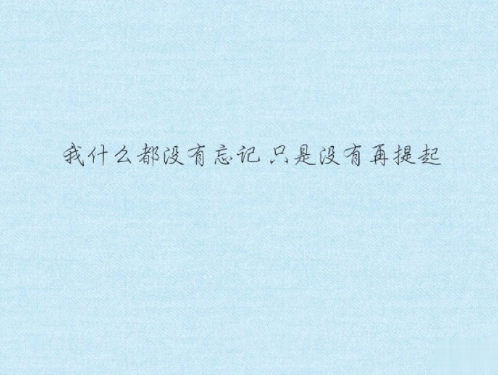 我什么都没有忘记 只是没有再提起